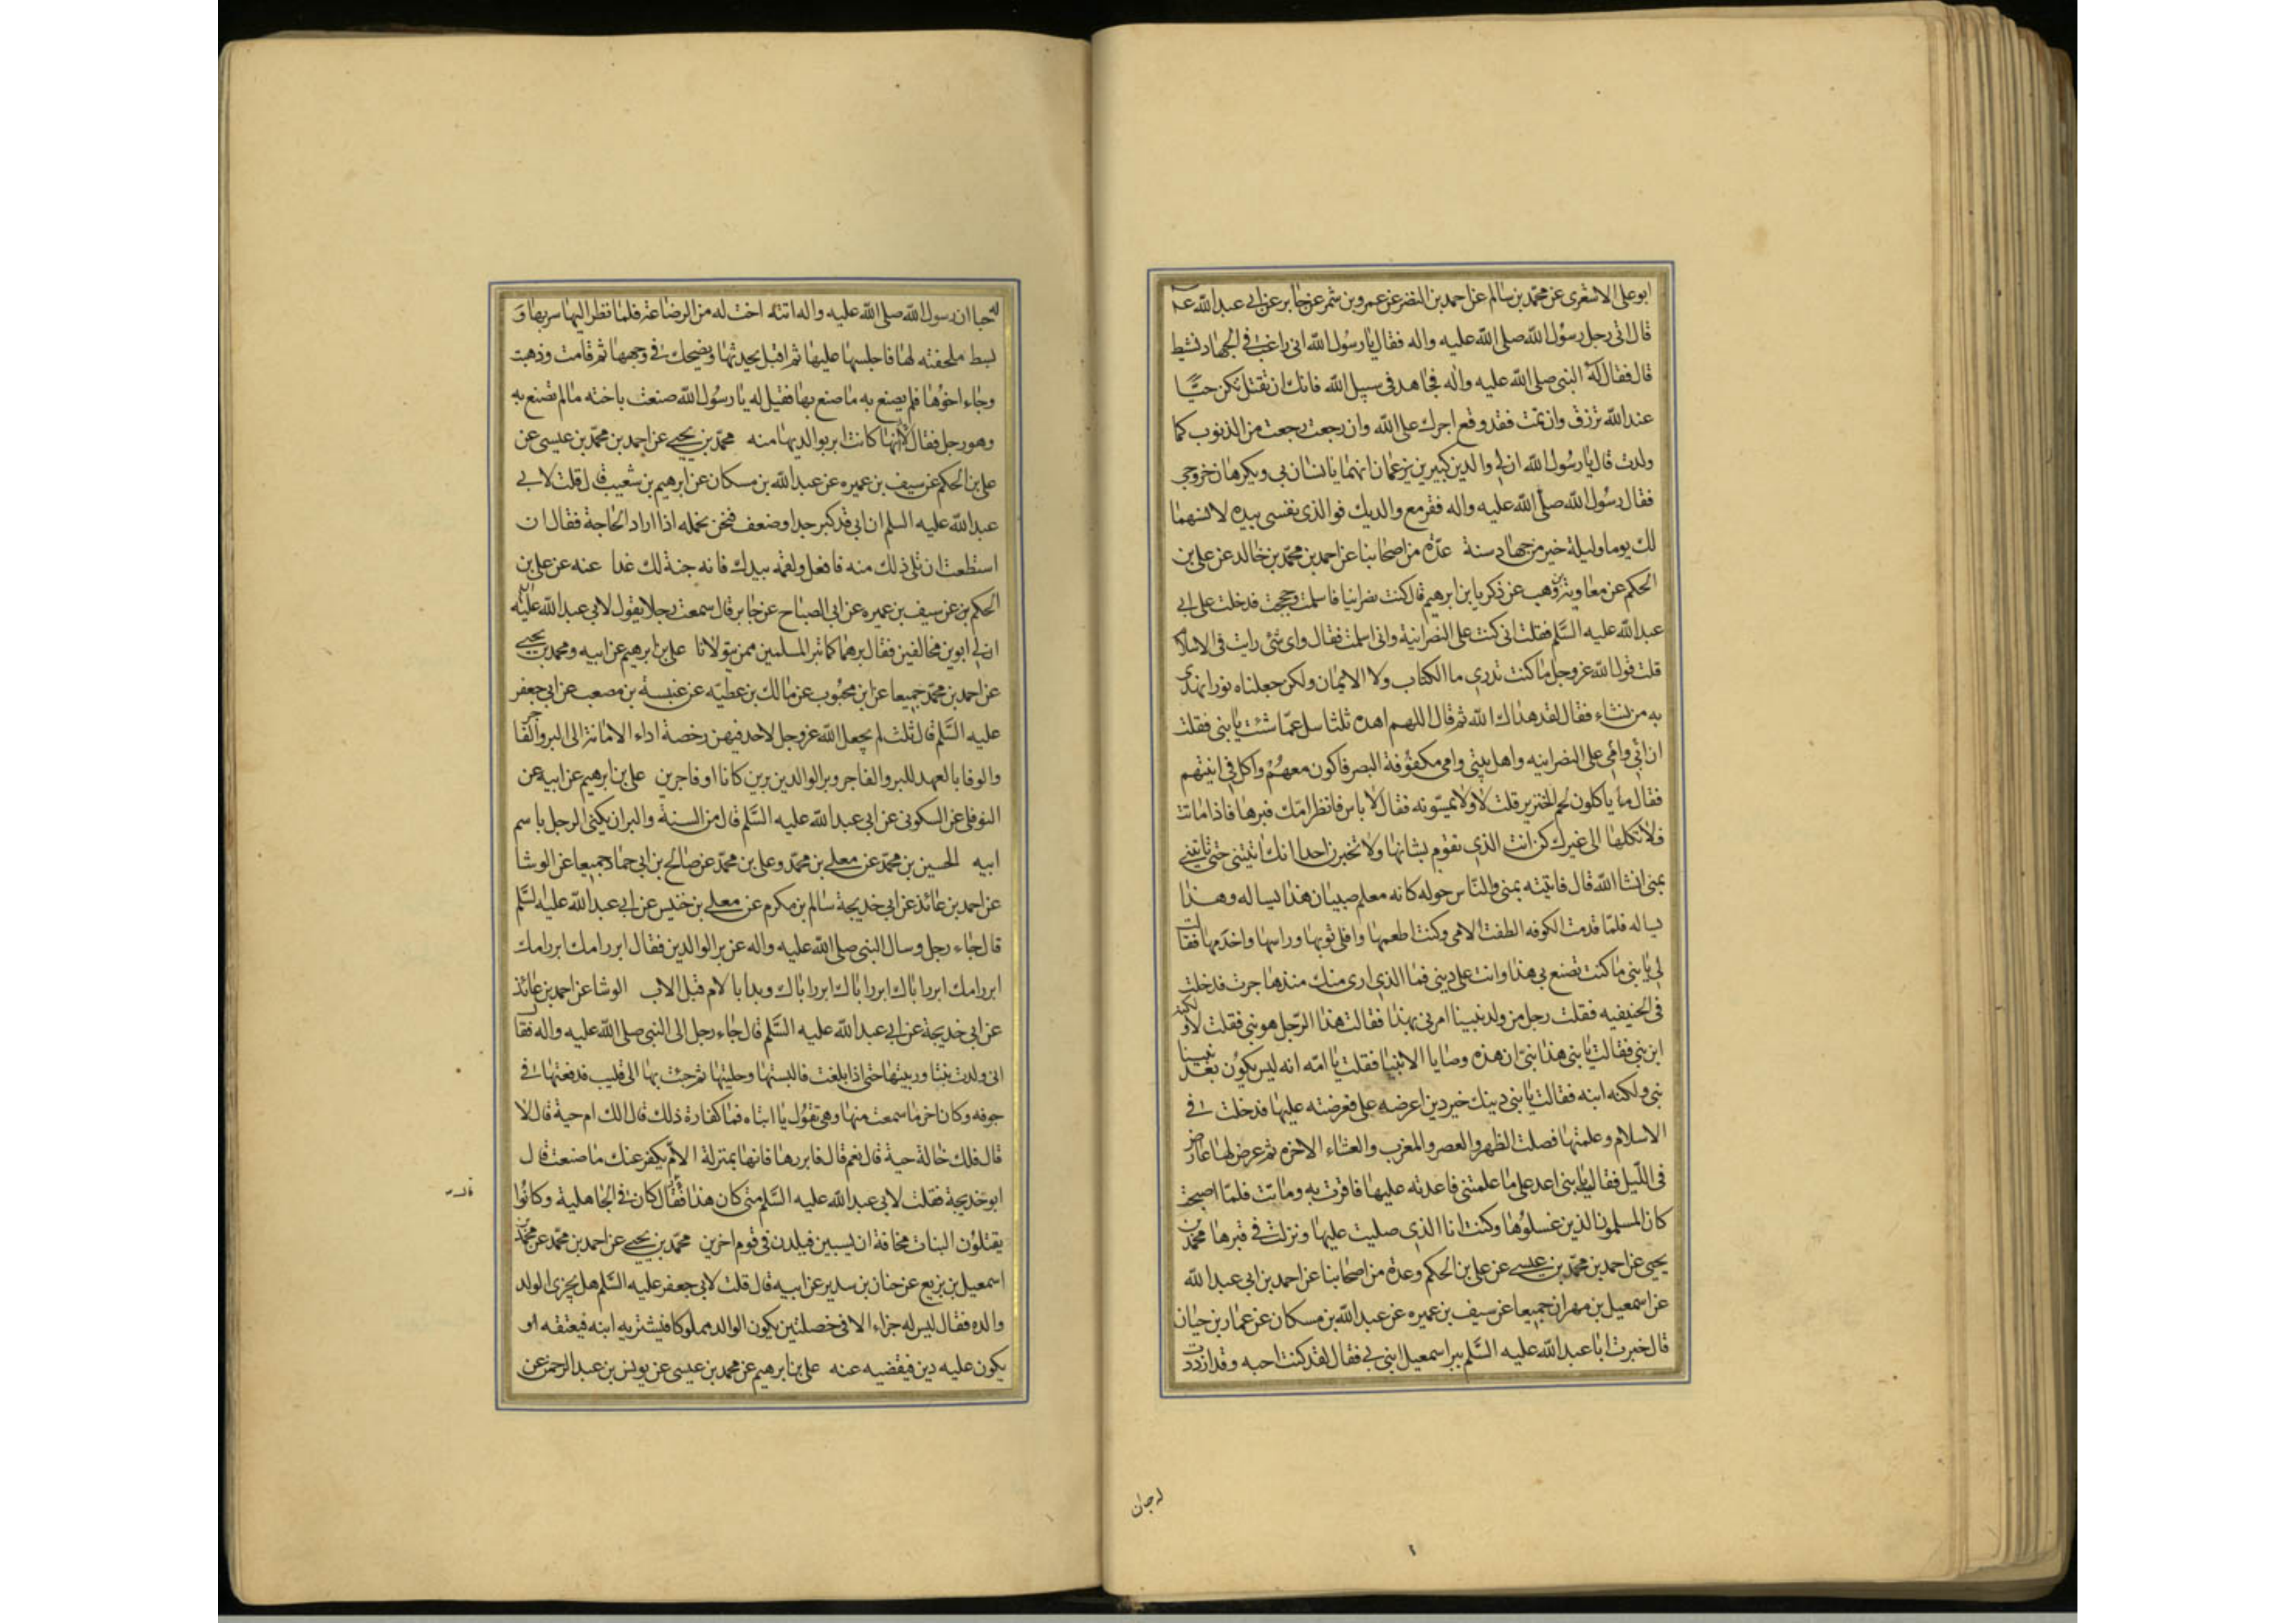 ابوعلى الاشعرى عن محمّد بن سالم عن احمد بن النضر عن عمرو بن شمر عن جابر عن ابى عبد الله عه
قال اتى رجل رسول الله صلى الله عليه واله فقال يا رسول الله انى راغب فى الجهاد نشيط
قال فقال له النبى صلى الله عليه واله فجاهد فى سبيل الله فانك ان تقتل تكن حيّا
عند الله ترزق وان تمت فقد وقع اجرك على الله وان رجعت رجعت من الذنوب كما
ولدت قال يا رسول الله ان لى والدين كبيرين يزعمان انهما يانسان بى ويكرهان خروجى
فقال رسول الله صلى الله عليه واله فقر مع والديك فوالذى نفسى بيده لانسهما
لك يوما وليلة خير من جهاد سنة عدّة من اصحابنا عن احمد بن محمّد بن خالد عن على بن
الحكم عن معاوية بن وهب عن ذكريا بن ابرهيم قال كنت نصرانيا فاسلمت وحججت فدخلت على ابى
عبد الله عليه السَّلم فقلت انى كنت على النصرانية وانى اسلمت فقال واى شئ رايت فى الاسلام
قلت قول الله عز وجل ما كنت تدرى ما الكتاب ولا الايمان ولكن جعلناه نورا نهدى
به من نشاء فقال لقد هداك الله ثم قال اللهم اهده ثلثا سل عمّا شئت يا بنى فقلت
ان ابى وامى على النصرانيه واهل بيتى وامى مكفوفة البصر فاكون معهم واكل فى انيتهم
فقال ما ياكلون لحم الخنزير قلت لا ولا يمسّونه فقال لا باس فانظر امّك فبرها فاذا ماتت
فلا تكلها الى غيرك كن انت الذى تقوم بشانها ولا تخبرن احدا انك اتيتنى حتى تاتينى
بمنى انشا الله قال فاتيته بمنى والنّاس حوله كانه معلم صبيان هذا يساله وهذا
يساله فلمّا قدمت الكوفه الطفت لامى وكنت اطعمها وافلى ثوبها وراسها واخدمها فقالت
لى يا بنى ما كنت تصنع بى هذا وانت على دينى فما الذى ارى منك منذ هاجرت فدخلت
فى الحنيفيه فقلت رجل من ولد نبينا امرنى بهذا فقالت هذا الرّجل هو نبى فقلت لا ولكنه
ابن نبى فقالت يا بنى هذا نبىّ ان هذه وصايا الانبيا فقلت يا امّه انه ليس يكون بعد نبينا
نبى ولكنه ابنه فقالت يا بنى دينك خير دين اعرضه على فعرضته عليها فدخلت فى
الاسلام وعلمتها فصلت الظهر والعصر والمغرب والعشاء الاخره ثم عرض لها عارض
فى اللّيل فقالت يا بنى اعد على ما علمتنى فاعدته عليها فاقرت به وماتت فلمّا اصبحت
كان المسلمون الذين غسلوها وكنت انا الذى صليت عليها ونزلت فى قبرها محمّد بن
يحيى عن احمد بن محمّد بن عيسى عن على بن الحكم وعدة من اصحابنا عن احمد بن ابى عبد الله
عن اسمعيل بن مهران جميعا عن سيف بن عميره عن عبد الله بن مسكان عن عمار بن حيان
قال خبرت ابا عبد الله عليه السَّلم ببر اسمعيل ابنى بى فقال لقد كنت احبه وقد ازددت
له حبا ان
له حبا ان رسول الله صلى الله عليه واله اتته اخت له من الرضاعة فلما نظر اليها سر بها و
بسط ملحفته لها فاجلسها عليها ثم اقبل يحدثها ويضحك فى وجهها ثم قامت وذهبت
وجاء اخوها فلم يصنع به ما صنع بها فقيل له يا رسول الله صنعت باخته ما لم تصنع به
وهو رجل فقال لانها كانت ابر بوالديها منه محمّد بن يحيى عن احمد بن محمّد بن عيسى عن
على بن الحكم عن سيف بن عميره عن عبد الله بن مسكان عن ابرهيم بن شعيب قال قلت لابى
عبد الله عليه السلم ان ابى قد كبر جدا وضعف فنحن نحمله اذا اراد الحاجة فقال ان
استطعت ان تلى ذلك منه فافعل ولقمه بيدك فانه جنة لك غدا عنه عن على بن
الحكم بن عن سيف بن عميره عن ابى الصباح عن جابر قال سمعت رجلا يقول لابى عبد الله عليه السلم
ان لى ابوين مخالفين فقال برهما كما تبر المسلمين ممن يتولانا على بن ابرهيم عن ابيه ومحمد بن يحيى
عن احمد بن محمّد جميعا عن ابن محبوب عن مالك بن عطيّه عن عنبسة بن مصعب عن ابى جعفر
عليه السَّلم قال ثلث لم يجعل الله عز وجل لاحد فيهن رخصة اداء الامانة الى البر والفاجر
والوفا بالعهد للبر والفاجر وبر الوالدين برين كانا او فاجرين على بن ابرهيم عن ابيه عن
النوفلى عن السكونى عن ابى عبد الله عليه السَّلم قال من السنة والبر ان يكنى الرجل باسم
ابيه الحسين بن محمّد عن معلى بن محمّد وعلى بن محمّد عن صالح بن ابى حماد جميعا عن الوشا
عن احمد بن عائذ عن ابى خديجة سالم بن مكرم عن معلى بن خنيس عن ابى عبد الله عليه السَّلم
قال جاء رجل وسال النبى صلى الله عليه واله عن بر الوالدين فقال ابرر امك ابرر امك
ابرر امك ابرر اباك ابرر اباك ابرر اباك وبدا بالام قبل الاب الوشا عن احمد بن عائذ
عن ابى خديجة عن ابى عبد الله عليه السَّلم قال جاء رجل الى النبى صلى الله عليه واله فقال
انى ولدت بنتا وربيتها حتى اذا بلغت فالبستها وحليتها ثم جئت بها الى قليب فدفعتها فى
جوفه وكان اخر ما سمعت منها وهى تقول يا ابتاه فما كفارة ذلك قال الك ام حية قال لا
قال فلك خالة حية قال نعم قال فابررها فانها بمنزلة الامّ يكفر عنك ما صنعت قال
ابو خديجة فقلت لابى عبد الله عليه السَّلم متى كان هذا فقال كان فى الجاهلية وكانوا
يقتلون البنات مخافة ان يسبين فيلدن فى قوم اخرين محمّد بن يحيى عن احمد بن محمّد عن محمّد بن
اسمعيل بن بزيع عن حنان بن سدير عن ابيه قال قلت لابى جعفر عليه السَّلم هل يجزى الولد
والده فقال ليس له جزاء الا فى خصلتين يكون الوالد مملوكا فيشتريه ابنه فيعتقه او
يكون عليه دين فيقضيه عنه على بن ابرهيم عن محمد بن عيسى عن يونس بن عبد الرحمن عن